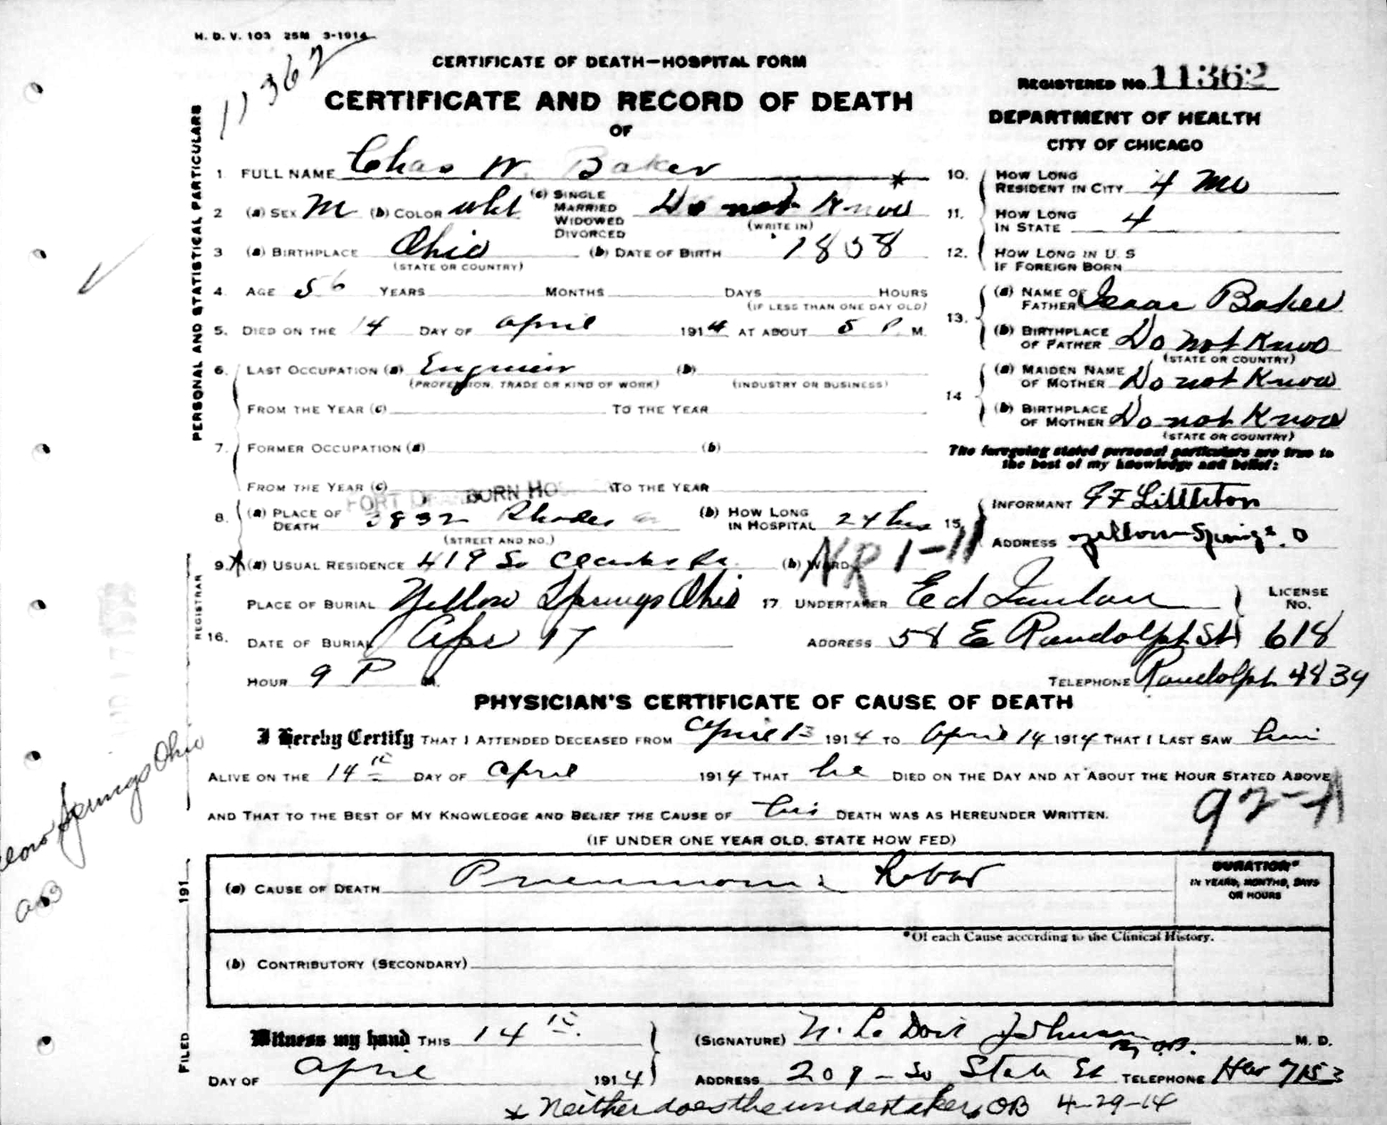 H. D. V. 103 25M 3-1914
11362
CERTIFICATE OF DEATH—HOSPITAL FORM
REGISTERED NO. 11362
CERTIFICATE AND RECORD OF DEATH
OF
DEPARTMENT OF HEALTH
CITY OF CHICAGO
PERSONAL AND STATISTICAL PARTICULARS
1. FULL NAME Chas W. Baker *
2 (a) SEX M (b) COLOR wht (c) SINGLE MARRIED WIDOWED DIVORCED Do not Know
(WRITE IN)
3 (a) BIRTHPLACE Ohio (b) DATE OF BIRTH 1858
(STATE OR COUNTRY)
4. AGE 56 YEARS MONTHS DAYS HOURS
(IF LESS THAN ONE DAY OLD)
5. DIED ON THE 14 DAY OF April 1914 AT ABOUT 5 P. M.
6. LAST OCCUPATION (a) Engineer (b)
(PROFESSION, TRADE OR KIND OF WORK) (INDUSTRY OR BUSINESS)
FROM THE YEAR (c) TO THE YEAR
7. FORMER OCCUPATION (a) (b)
FROM THE YEAR (c) TO THE YEAR
FORT DEARBORN HO
8. (a) PLACE OF DEATH 3832 Rhodes (b) HOW LONG IN HOSPITAL 24 hrs
(STREET AND NO.)
9. * (a) USUAL RESIDENCE 419 So (b) WARD
NR 1-11
10. HOW LONG RESIDENT IN CITY 4 Mo
11. HOW LONG IN STATE 4
12. HOW LONG IN U S IF FOREIGN BORN
13. (a) NAME OF FATHER Isaac Baker
(b) BIRTHPLACE OF FATHER Do not Know
(STATE OR COUNTRY)
14 (a) MAIDEN NAME OF MOTHER Do not Know
(b) BIRTHPLACE OF MOTHER Do not Know
(STATE OR COUNTRY)
The foregoing stated personal particulars are true to
the best of my knowledge and belief:
15 INFORMANT Littleton
ADDRESS Yellow Springs. O
REGISTRAR
16. PLACE OF BURIAL Yellow Springs Ohio
DATE OF BURIAL Apr 17
HOUR 9 P M.
17. UNDERTAKER Ed LICENSE NO. 618
ADDRESS 58 E Randolph St
TELEPHONE Randolph 4839
PHYSICIAN'S CERTIFICATE OF CAUSE OF DEATH
I Hereby Certify THAT I ATTENDED DECEASED FROM April 13 1914 TO April 14 1914 THAT I LAST SAW him
ALIVE ON THE 14th DAY OF April 1914 THAT he DIED ON THE DAY AND AT ABOUT THE HOUR STATED ABOVE
AND THAT TO THE BEST OF MY KNOWLEDGE AND BELIEF THE CAUSE OF his DEATH WAS AS HEREUNDER WRITTEN.
92-11
(IF UNDER ONE YEAR OLD, STATE HOW FED)
Springs Ohio
(a) CAUSE OF DEATH Pneumonia Lobar
DURATION*
IN YEARS, MONTHS, DAYS
OR HOURS
*Of each Cause according to the Clinical History.
(b) CONTRIBUTORY (SECONDARY)
FILED 191
Witness my hand THIS 14th
DAY OF April 1914
(SIGNATURE) Johnson M. D.
ADDRESS 209 - So State St TELEPHONE Har 7153
* Neither does the undertaker, OB 4-29-14